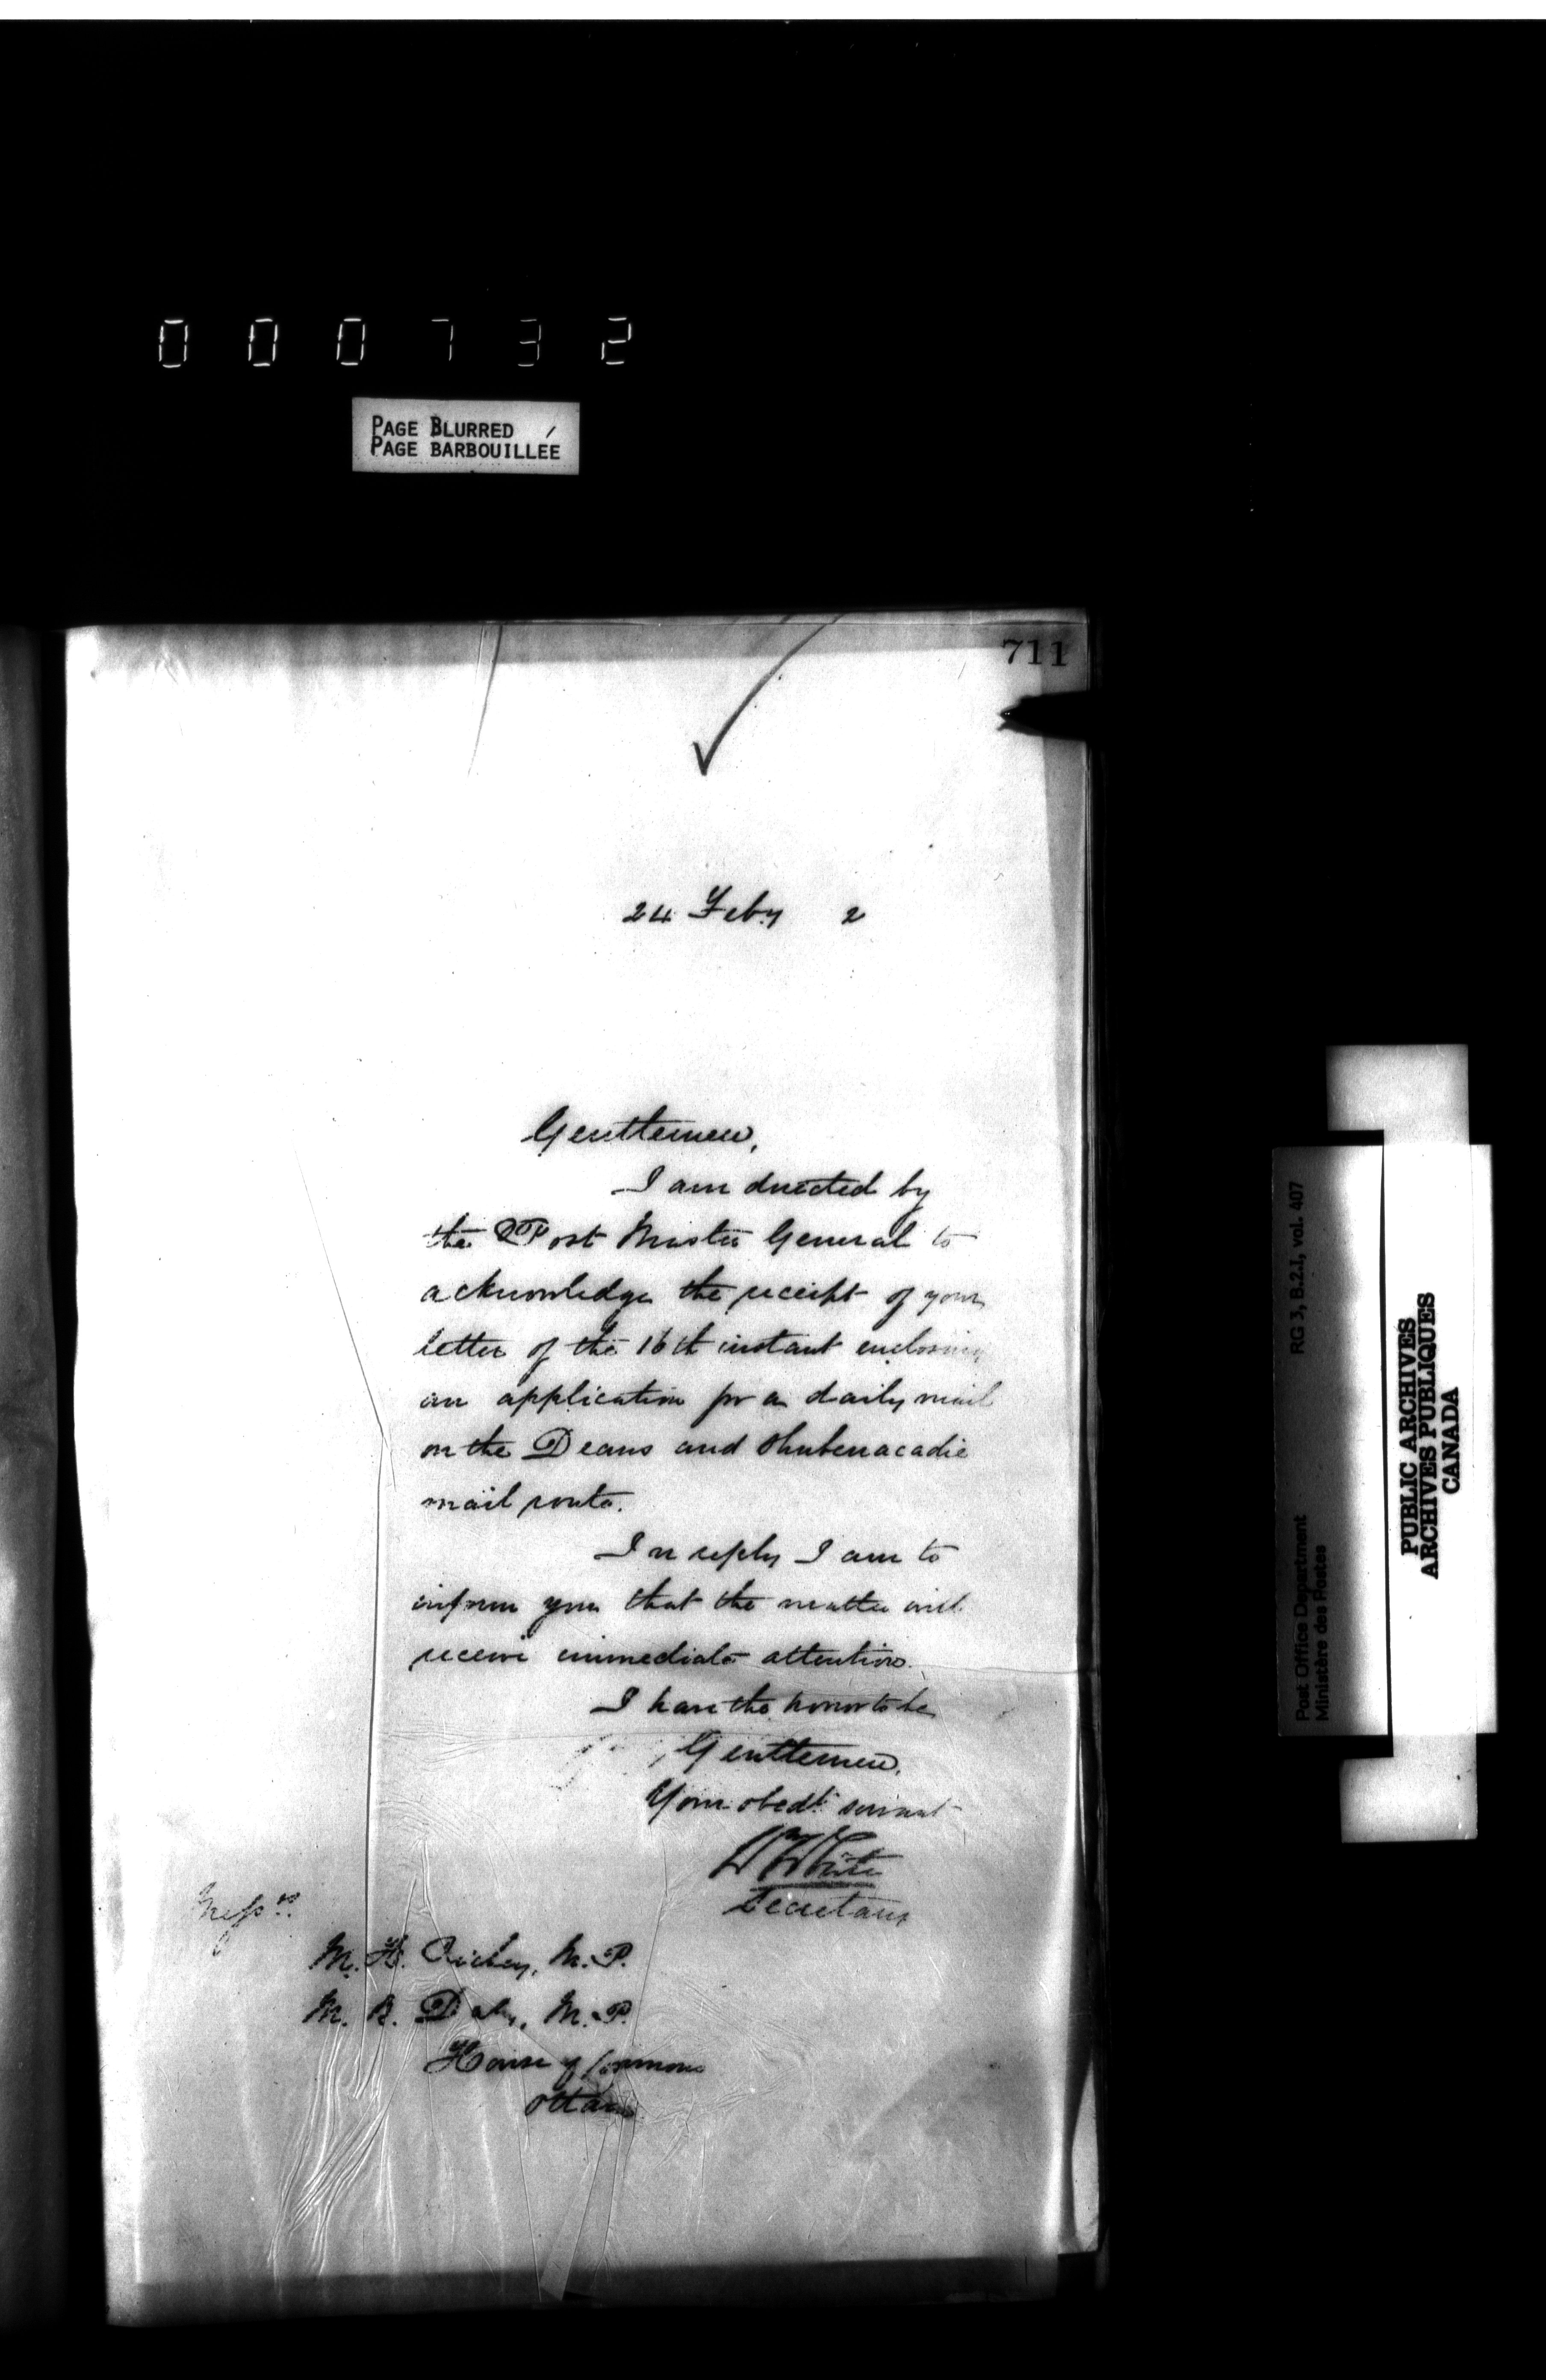 000732
PAGE BLURRED
PAGE BARBOUILLÉE
711
24 Feby 2
Gentlemen,
I am directed by
the Post Master General to
acknowledge the receipt of your
letter of the 16th instant enclosing
an application for a daily mail
on the Deans and Shubenacadie
mail route.
In reply I am to
inform you that the matter will
receive immediate attention.
I have the honor to be
Gentlemen,
Your obedt servant
White
Secretary
Messrs.
M. H. Richey, M.P.
M. B. Daly, M.P.
House of Commons
Ottawa
RG 3, B.2.1, vol. 407
Post Office Department
Ministère des Postes
PUBLIC ARCHIVES
ARCHIVES PUBLIQUES
CANADA